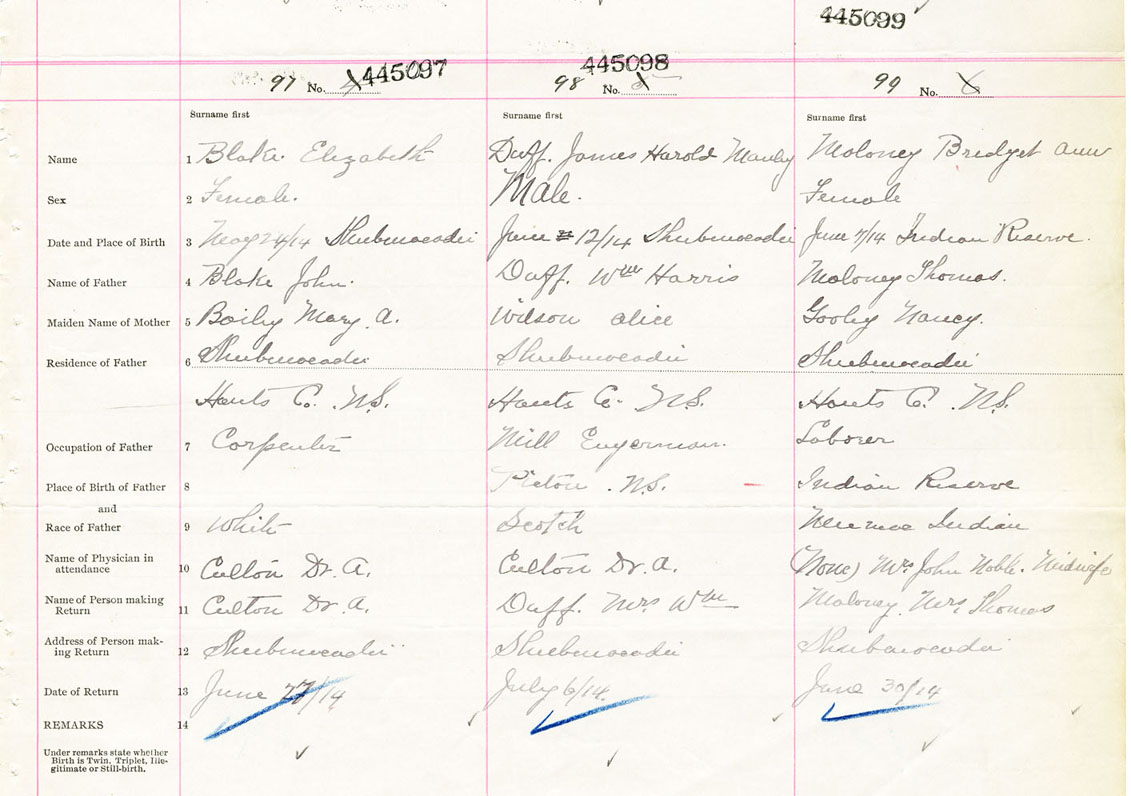 445099
445097 445098
97 No. 98 No. 5 99 No. 6
Surname first Surname first Surname first
Name 1 Blake Elizabeth Duff. James Harold Manley Moloney Bridget Ann
Sex 2 Female. Male. Female
Date and Place of Birth 3 May 24/14 Shubenacadie June 12/14 Shubenacadie June 7/14 Indian Reserve.
Name of Father 4 Blake John. Duff. Wm Harris Moloney Thomas.
Maiden Name of Mother 5 Mary A. Wilson Alice Nancy.
Residence of Father 6 Shubenacadie Shubenacadie Shubenacadie
Hants Co. N.S. Hants Co. N.S. Hants Co. N.S.
Occupation of Father 7 Carpenter Mill Laborer
Place of Birth of Father 8 Pictou. N.S. Indian Reserve
and
Race of Father 9 White Scotch Indian
Name of Physician in
attendance 10 Culton Dr. A. Culton Dr. A. (None) Mrs John Noble. Midwife
Name of Person making
Return 11 Culton Dr. A. Duff. Mrs Wm Moloney. Mrs. Thomas
Address of Person mak-
ing Return 12 Shubenacadie Shubenacadie Shubenacadie
Date of Return 13 June 27/14 July 6/14. June 30/14
REMARKS 14
Under remarks state whether
Birth is Twin, Triplet, Ille-
gitimate or Still-birth.